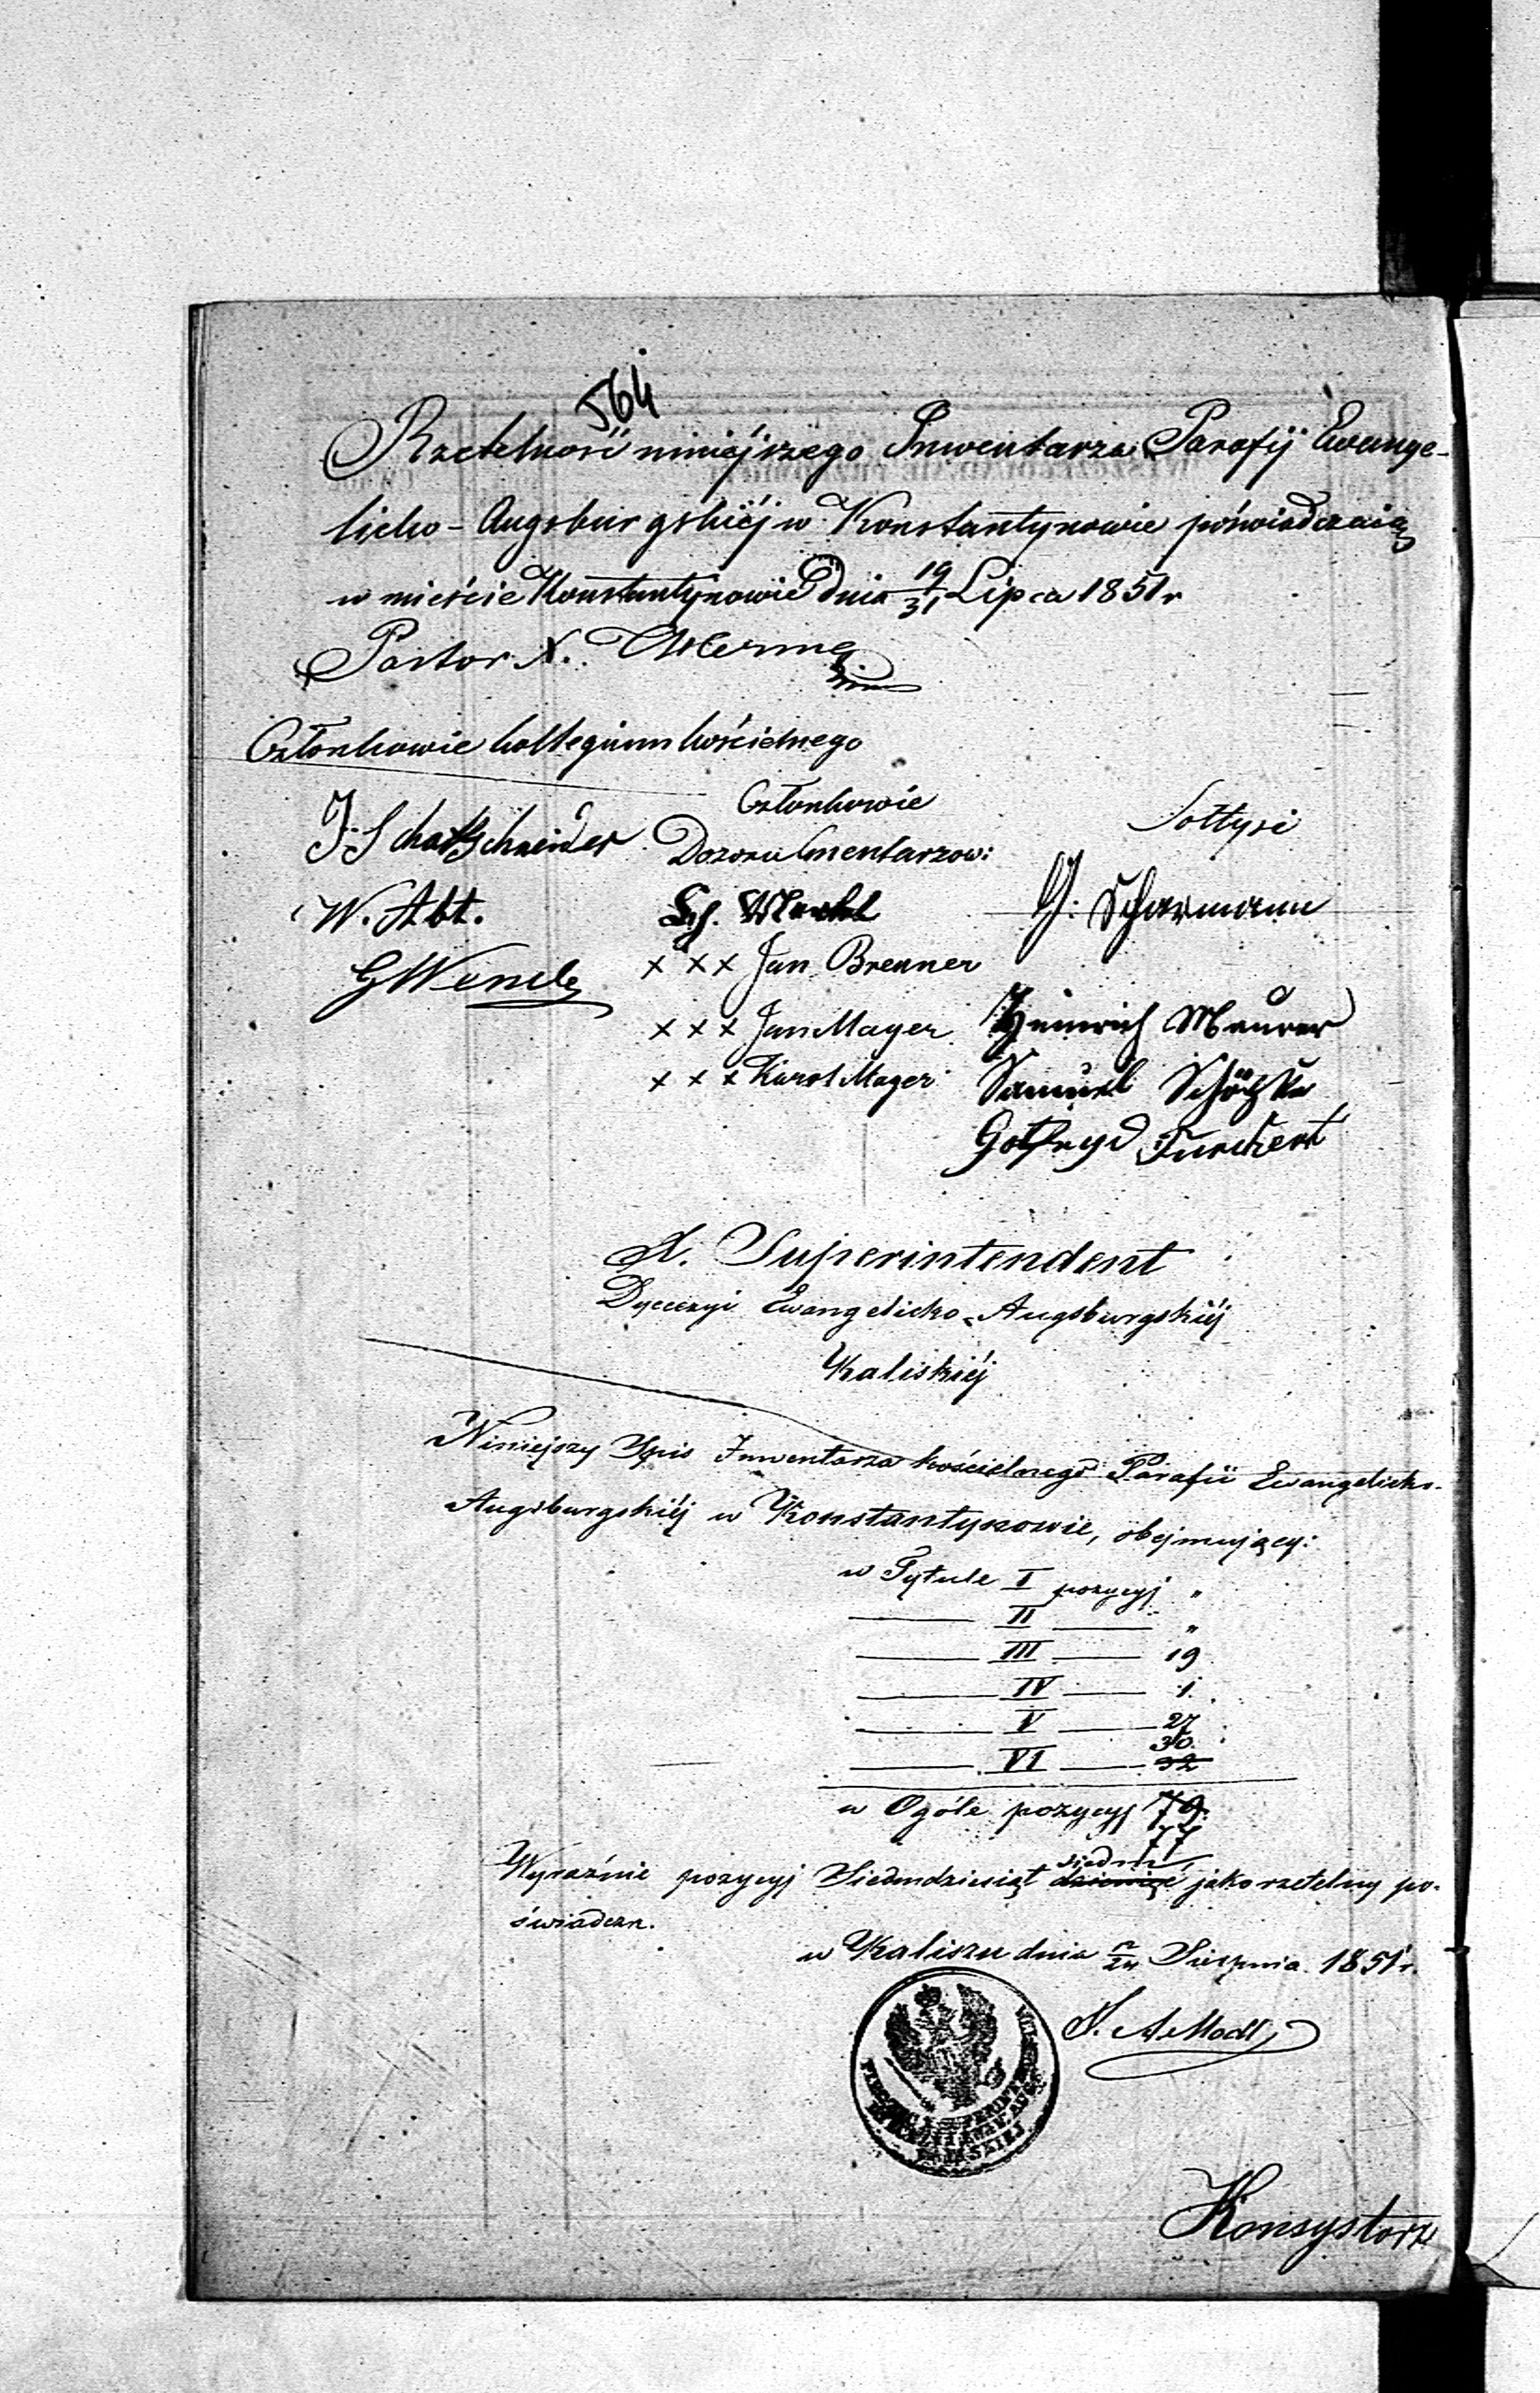 564
Rzetelność niniejszego Inwentarza Parafij Ewange-
licko-Augsburgskiéj w Konstantynowie poświadczaią
w mieście Konstantynowie dnia 19/31 Lipca 1851 r
Pastor X.
Członkowie kollegium kościelnego
Członkowie
Dozoru Cmentarzow:
Sołtysi
J. Schatschneider
W. Abt.
G Wende
xxx Jan Brenner
xxx Jan Mayer
xxx Karol Mayer
G. Scharmann
Heinrich Meurer
Samuel
Gotfryd
X. Superintendent
Dyecezyi Ewangelicko-Augsburgskiéj
Kaliskiéj
Niniejszy Spis Inwentarza kościelnego Parafii Ewangelicko-
Augsburgskiéj w Konstantynowie, obejmujący:
w Tytule I pozycyj "
II "
III 19
IV 1.
V 27
30.
VI 32
w Ogóle pozycyj 79.
77
siedm
Wyraźnie pozycyj Siedmdziesiąt dziewięć jako rzetelny po-
świadcza.
w Kaliszu dnia 12/24 Sierpnia 1851 r.
Modl
Konsystorz